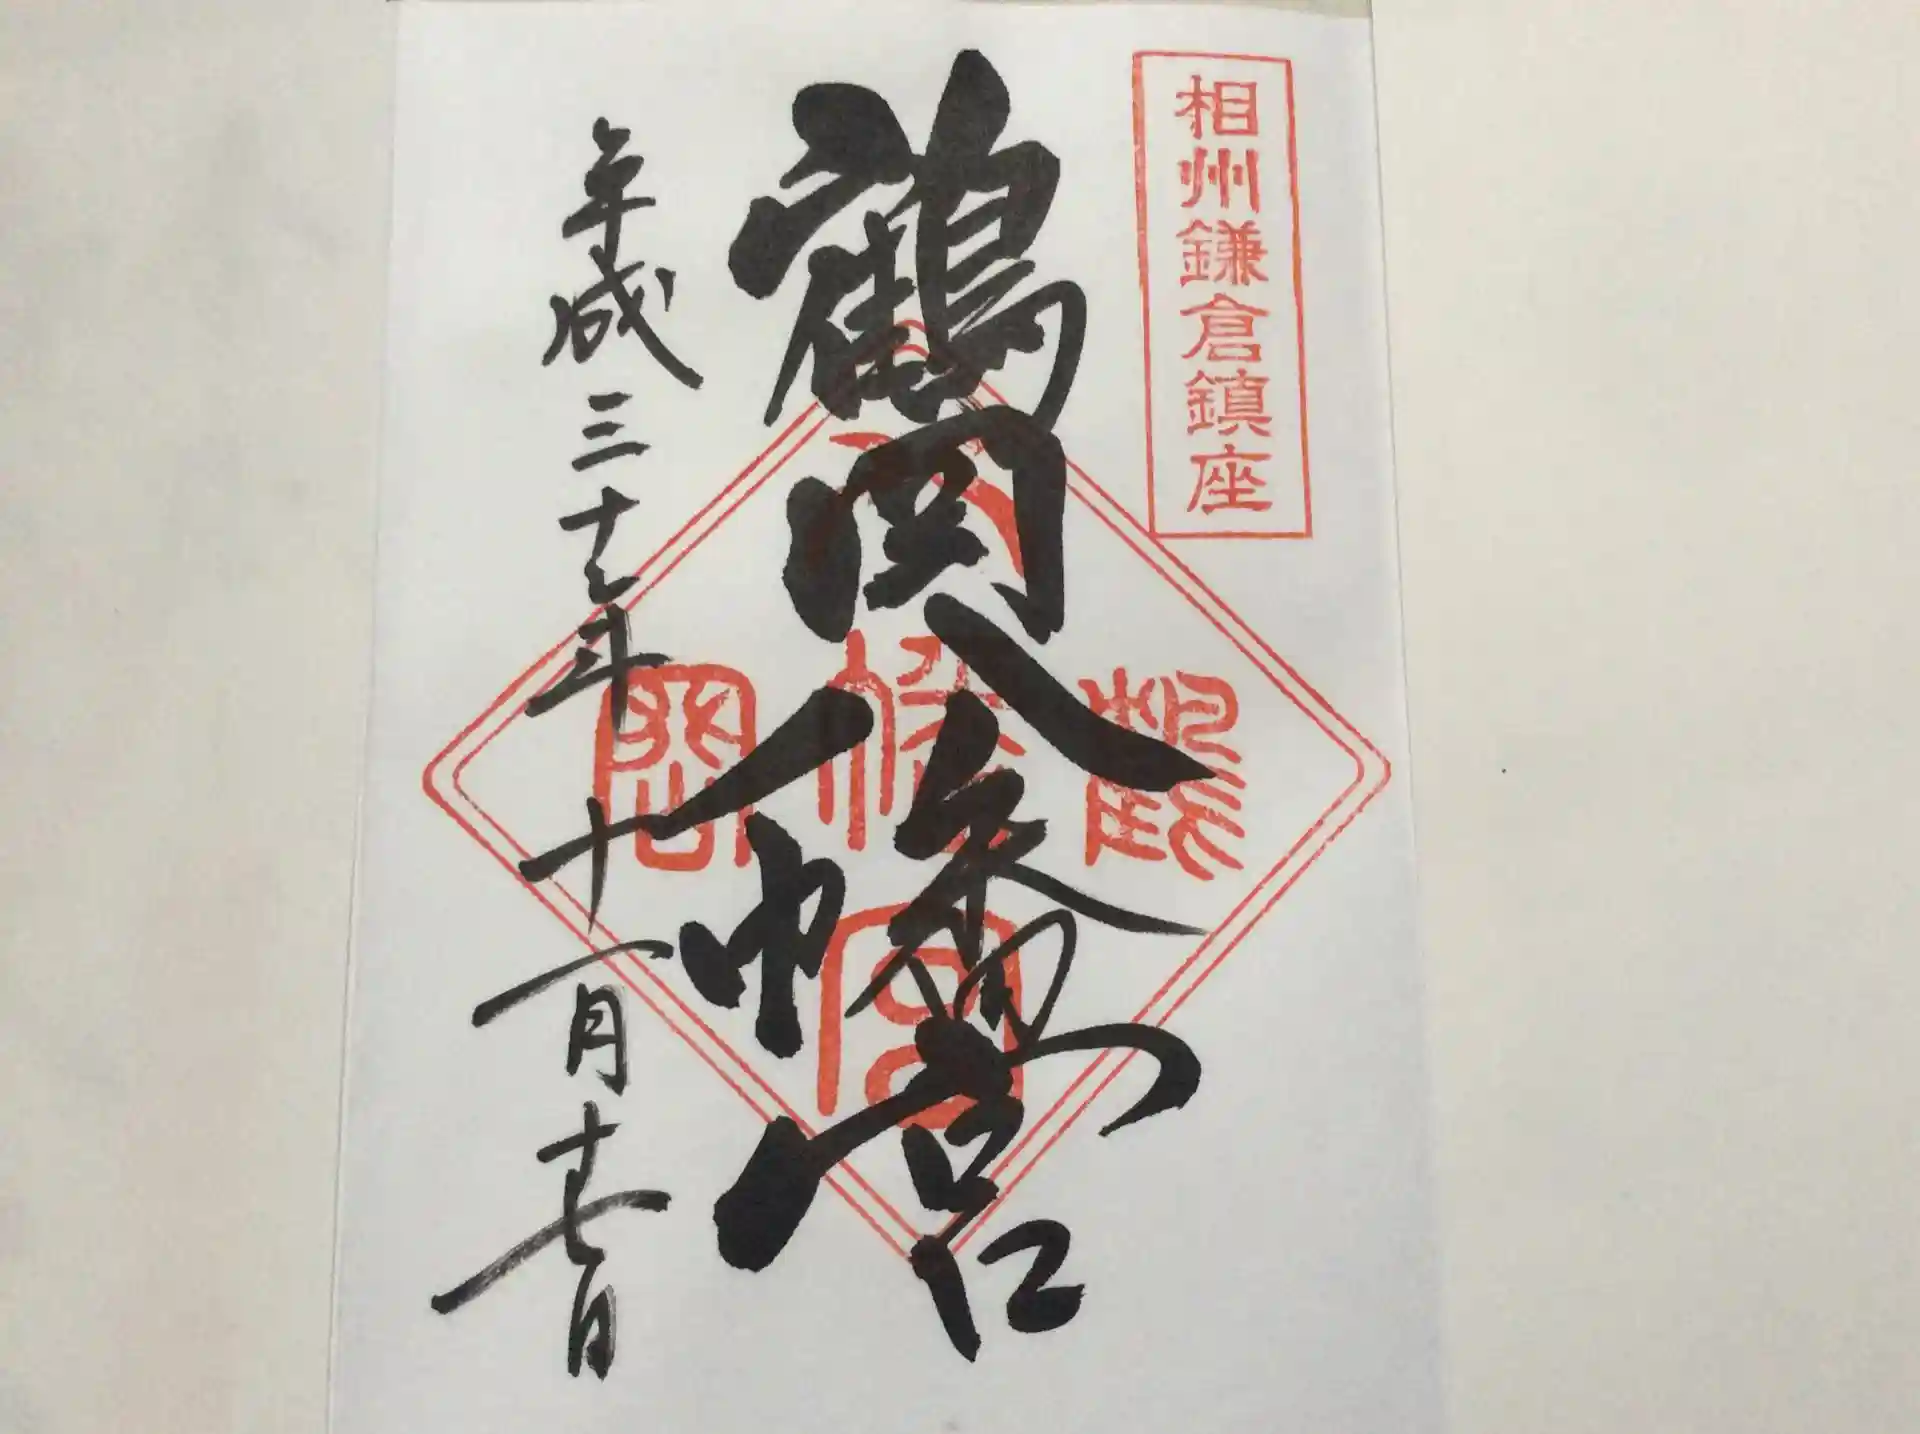 相州鎌倉鎮座
鶴岡八幡宮
鶴岡八幡宮
平成三十年十一月十七日